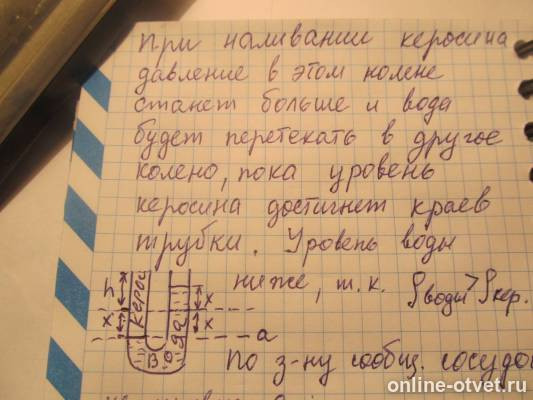 при наливании керосина
давление в этом колене
станет больше и вода
будет перетекать в другое
колено, пока уровень
керосина достигнет краев
трубки. Уровень воды
ниже, т.к. ρводы > ρкер.
h керос x
x x а
вода
По з-ну сообщ. сосудо
online-otvet.ru